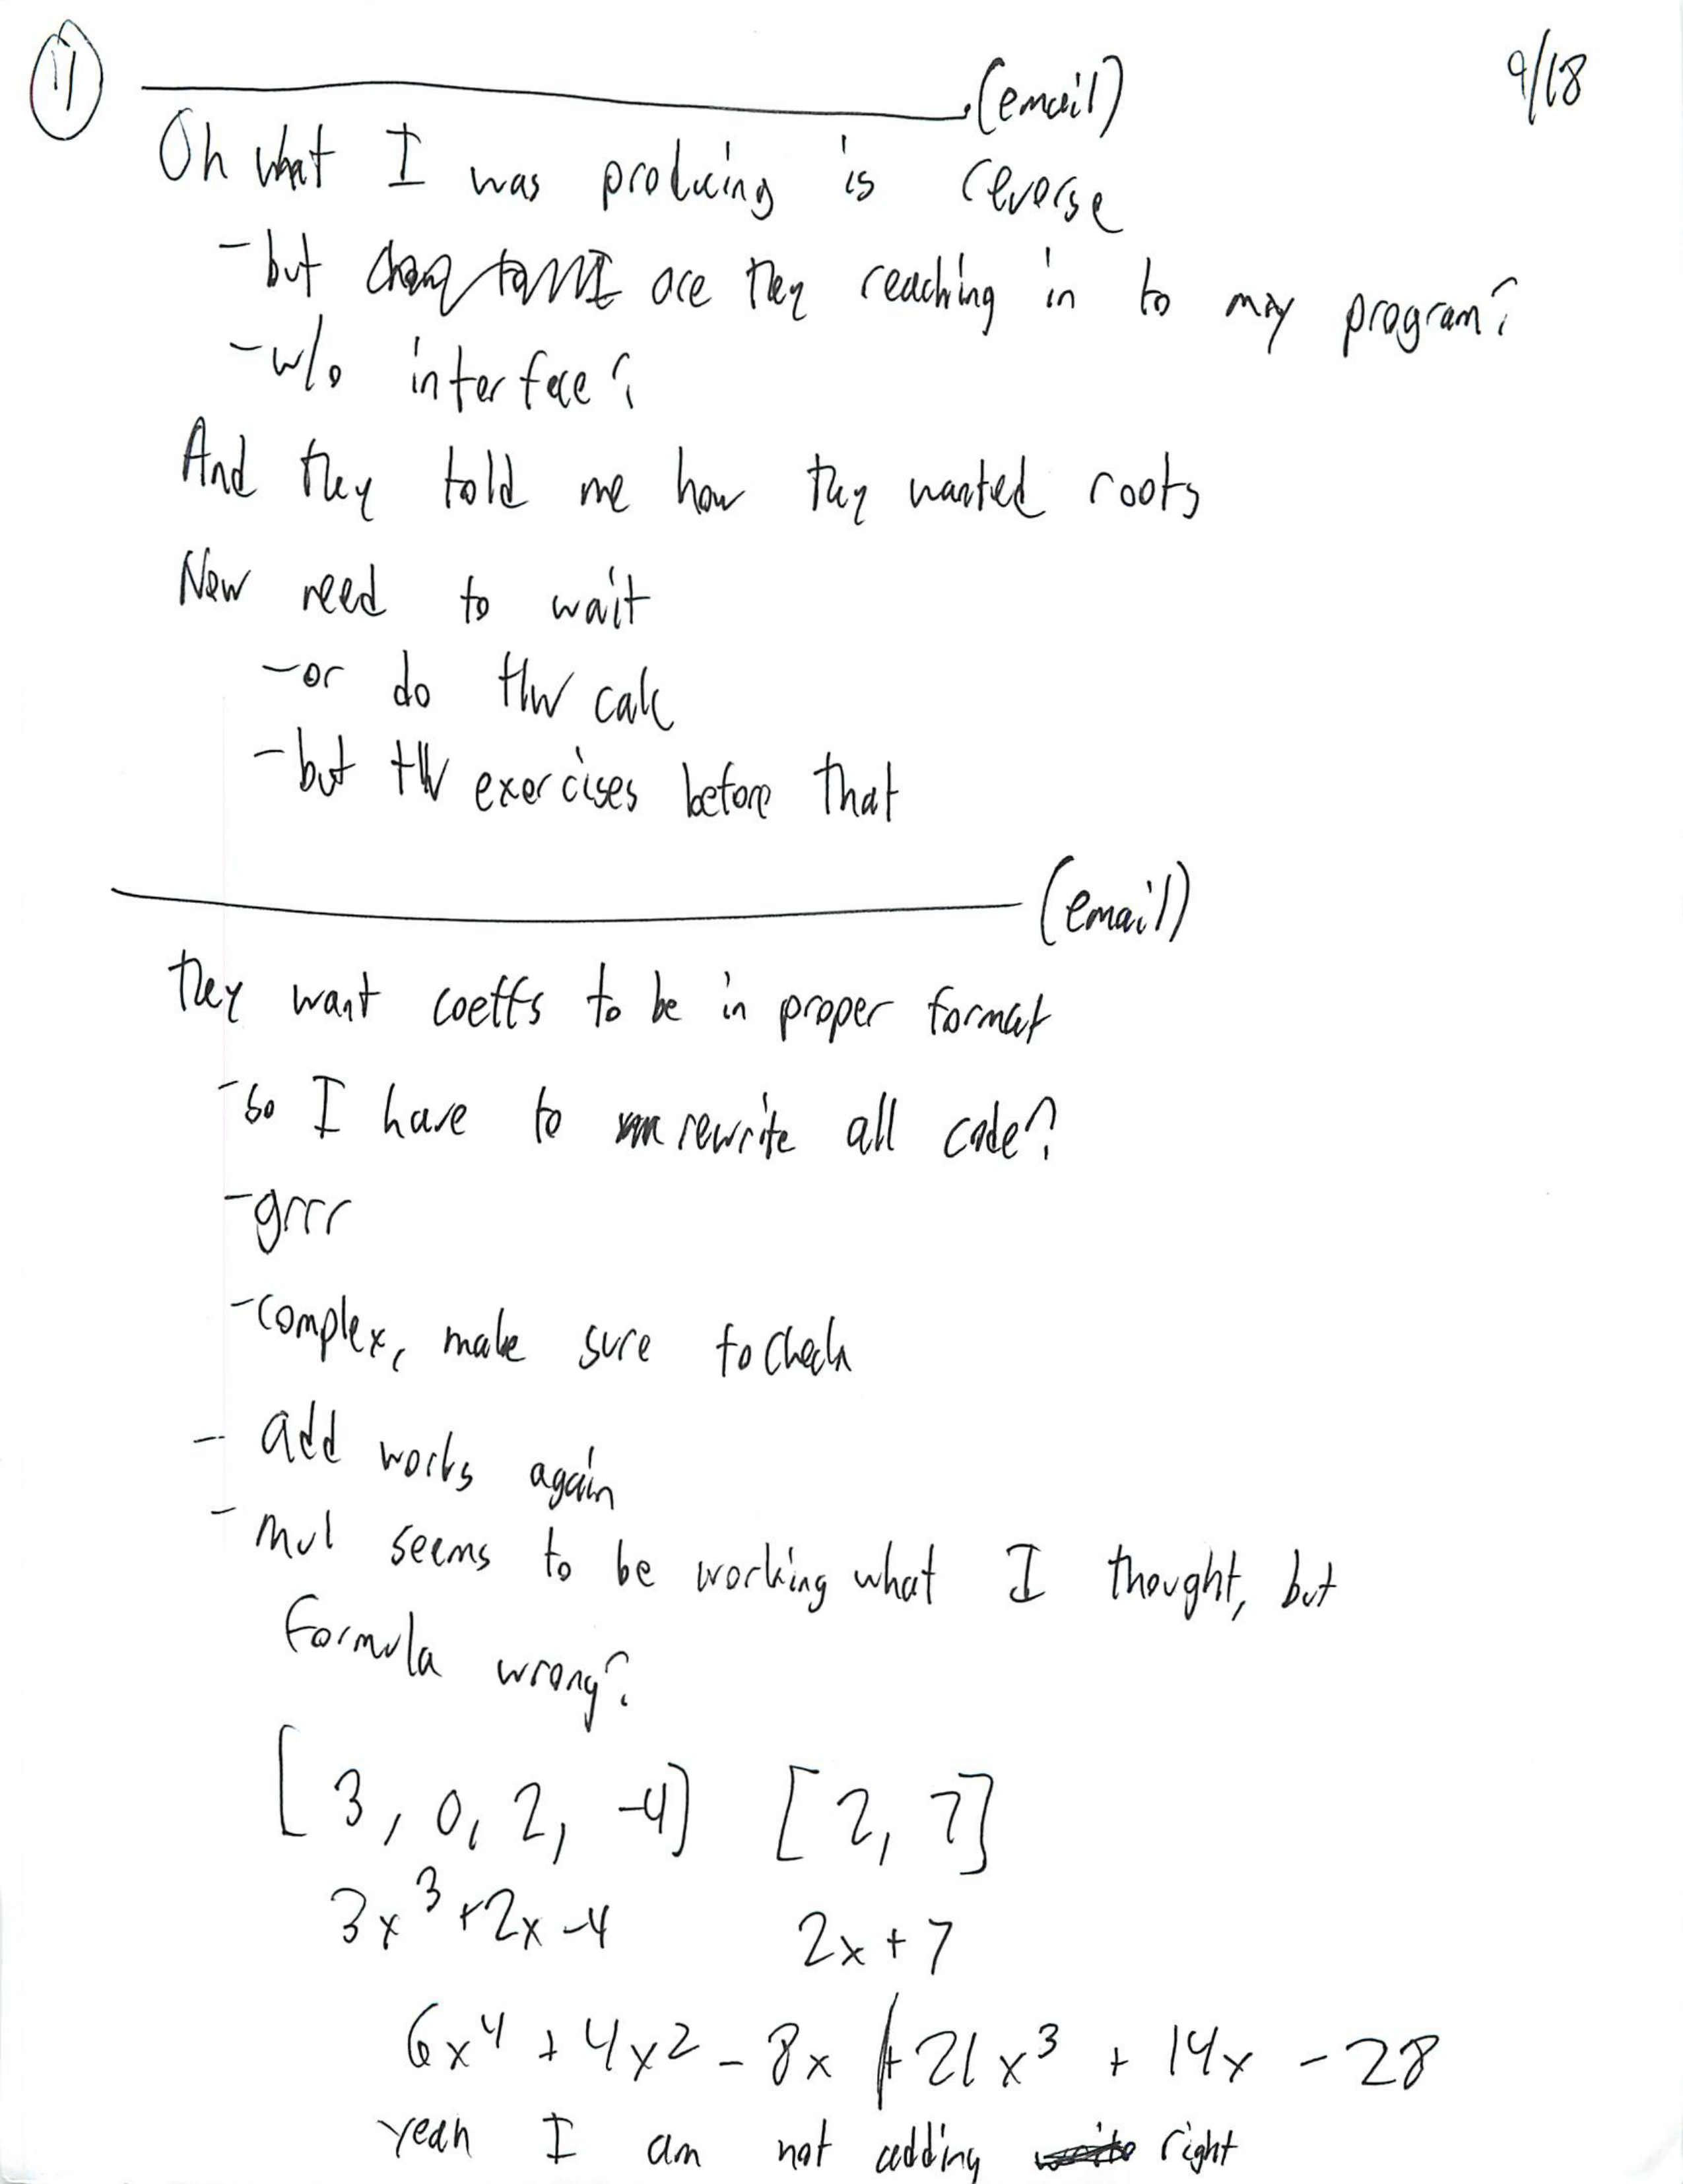 11 (email) 9/18
Oh what I was producing is reverse
-but are they reaching in to my program?
-w/o interface?
And they told me how they wanted roots
Now need to wait
-or do HW calc
-but HW exercises before that
(email)
They want coeffs to be in proper format
-so I have to rewrite all code?
-grrr
-complex, make sure to check
- add works again
- mul seems to be working what I thought, but
formula wrong?
[3, 0, 2, -4] [2, 7]
3x³+2x-4 2x+7
6x⁴ + 4x² - 8x + 21x³ + 14x - 28
yeah I am not adding right